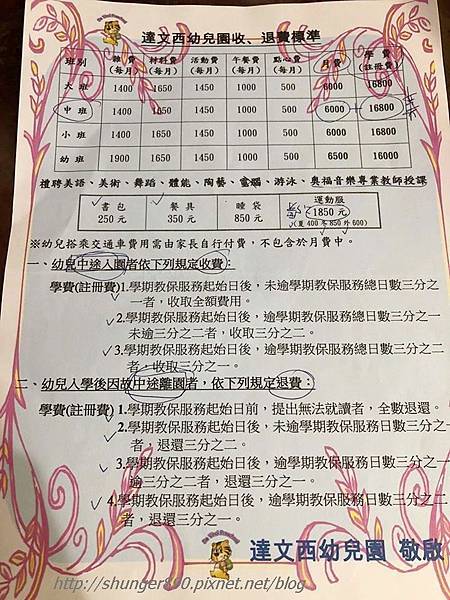 達文西幼兒園收、退費標準
班別 雜費(每月) 材料費(每月) 活動費(每月) 午餐費(每月) 點心費(每月) 月費 學費(註冊費)
大班 1400 1650 1450 1000 500 6000 16800
中班 1400 1650 1450 1000 500 6000 16800
小班 1400 1650 1450 1000 500 6000 16800
幼班 1900 1650 1450 1000 500 6500 16000
禮聘美語、美術、舞蹈、體能、陶藝、電腦、游泳、奧福音樂專業教師授課
書包 餐具 睡袋 運動服
250元 350元 850元 1850元
(夏400冬850外600)
※幼兒搭乘交通車費用需由家長自行付費,不包含於月費中。
一、幼兒中途入園者依下列規定收費:
學費(註冊費)1.學期教保服務起始日後,未逾學期教保服務總日數三分之
一者,收取全額費用。
2.學期教保服務起始日後,逾學期教保服務總日數三分之一
未逾三分之二者,收取三分之二。
3.學期教保服務起始日後,逾學期教保服務總日數三分之二
者,收取三分之一。
二、幼兒入學後因故中途離園者,依下列規定退費:
學費(註冊費)1.學期教保服務起始日前,提出無法就讀者,全數退還。
2.學期教保服務起始日後,未逾學期教保服務日數三分之一
者,退還三分之二。
3.學期教保服務起始日後,逾學期教保服務日數三分之一
逾三分之二者,退還三分之一。
4.學期教保服務起始日後,逾學期教保服務日數三分之二
者,退還三分之一。
達文西幼兒園 敬啟
http://shunger890.pixnet.net/blog